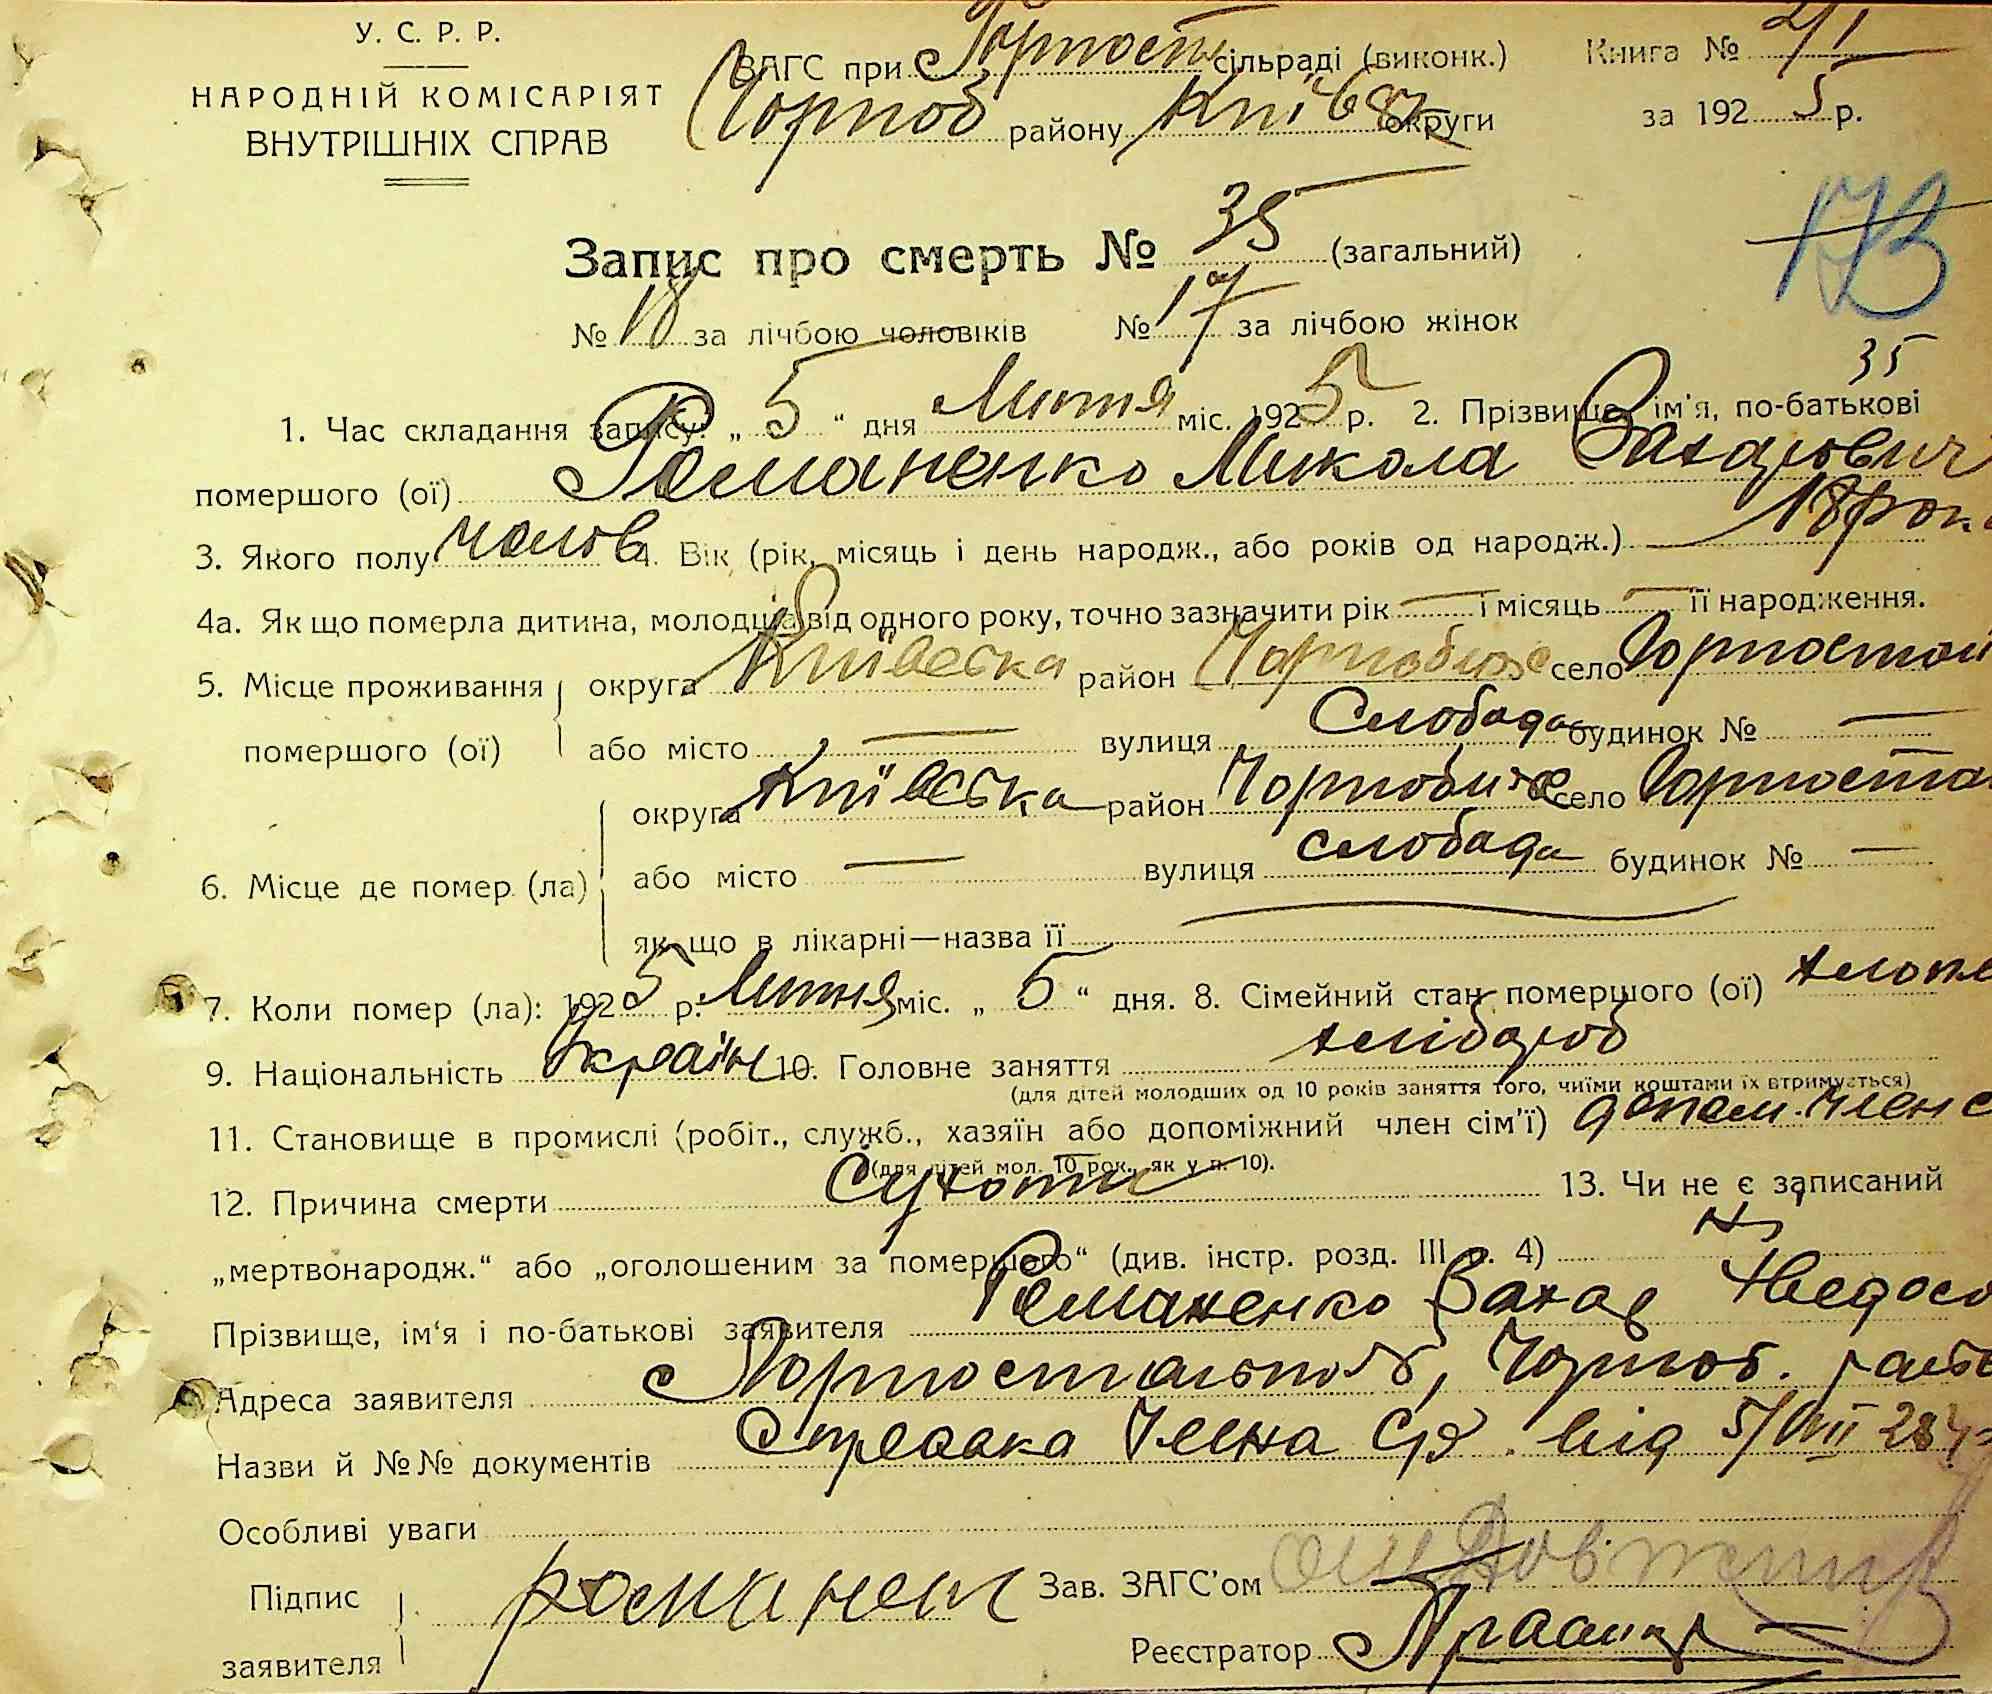 У. С. Р. Р.
НАРОДНІЙ КОМІСАРІЯТ
ВНУТРІШНІХ СПРАВ
ЗАГС при Горност сільраді (виконк.)
Чорноб району Київ округи
Книга №
за 192 5 р.
Запис про смерть № 35 (загальний)
№ 18 за лічбою чоловіків № 17 за лічбою жінок
173
35
1. Час складання запису: „ 5 “ дня Липня міс. 192 5 р. 2. Прізвище, ім'я, по-батькові
помершого (ої) Романенко Микола Захарович
3. Якого полу чолов 4. Вік (рік, місяць і день народж., або років од народж.) 18 рок
4а. Якщо померла дитина, молодша від одного року, точно зазначити рік — і місяць — її народження.
5. Місце проживання помершого (ої) округа Київська район Чорнобильс село Горностай
або місто — вулиця Слобода будинок № —
6. Місце де помер (ла) округа Київська район Чорнобильс село Горноста
або місто — вулиця слобода будинок № —
якщо в лікарні—назва її
7. Коли помер (ла): 192 5 р. Липня міс. „ 5 “ дня. 8. Сімейний стан помершого (ої) холост
9. Національність Україн 10. Головне заняття хлібороб
(для дітей молодших од 10 років заняття того, чиїми коштами їх втримується)
11. Становище в промислі (робіт., служб., хазяїн або допоміжний член сім'ї) допом. член с
(для дітей мол. 10 рок., як у п. 10).
12. Причина смерти Сухоти 13. Чи не є записаний
„мертвонародж.“ або „оголошеним за помершого“ (див. інстр. розд. III п. 4) Ні
Прізвище, ім'я і по-батькові заявителя Романенко Захар
Адреса заявителя Чорноб.
Назви й №№ документів Справка Члена С/р від 5/VII
Особливі уваги
Підпис заявителя романен
Зав. ЗАГС'ом
Реєстратор